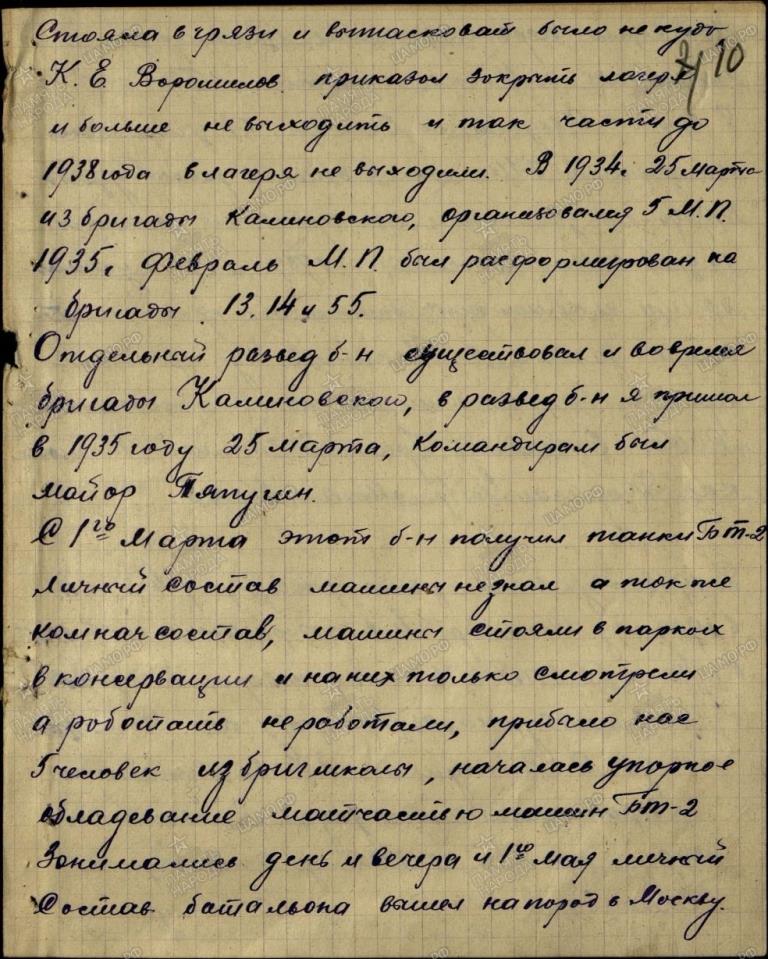 Стояла в грязи и вытасковат было не куды
2/10
К. Е. Ворошилов приказал закрыть лагеря
и больше не выходить и так части до
1938 года в лагеря не выходили. В 1934г 25 марта
из бригады Калиновского, организовался 5 М.П.
1935г Февраль М.П. был расформирован на
бригады 13. 14 и 55.
Отдельный развед б-н существовал и во время
бригады Калиновского, в развед б-н я пришол
в 1935 году 25 марта, командирам был
майор Тяпугин.
С 1го Марта этот б-н получил танки БТ-2
личный состав машины не знал а так же
комначсостав, машины стояли в парках
в консервации и на них только смотрели
а роботать не работали, прибыло нас
5 человек из бригшколы, началась упорное
обладевание матчастью машин БТ-2
Занимались день и вечера и 1го мая личный
Состав баталиона вышел на парад в Москву.